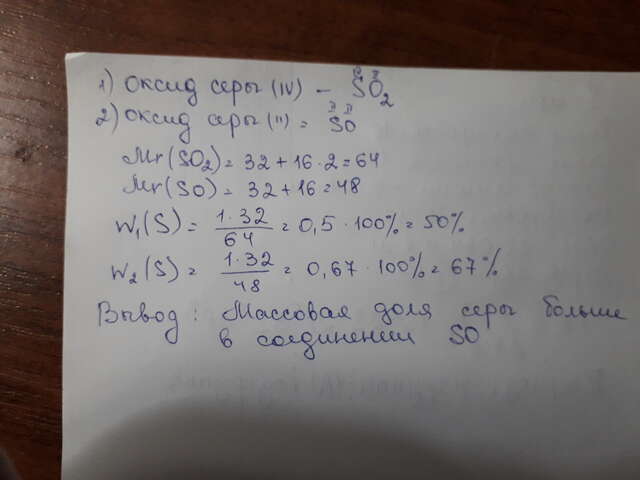 1) оксид серы (IV) - SO₂
2) оксид серы (II) = SO
Mr(SO₂) = 32 + 16·2 = 64
Mr(SO) = 32 + 16 = 48
W₁(S) = 1·32/64 = 0,5·100% = 50%
W₂(S) = 1·32/48 = 0,67·100% = 67%
Вывод: Массовая доля серы больше
в соединении SO